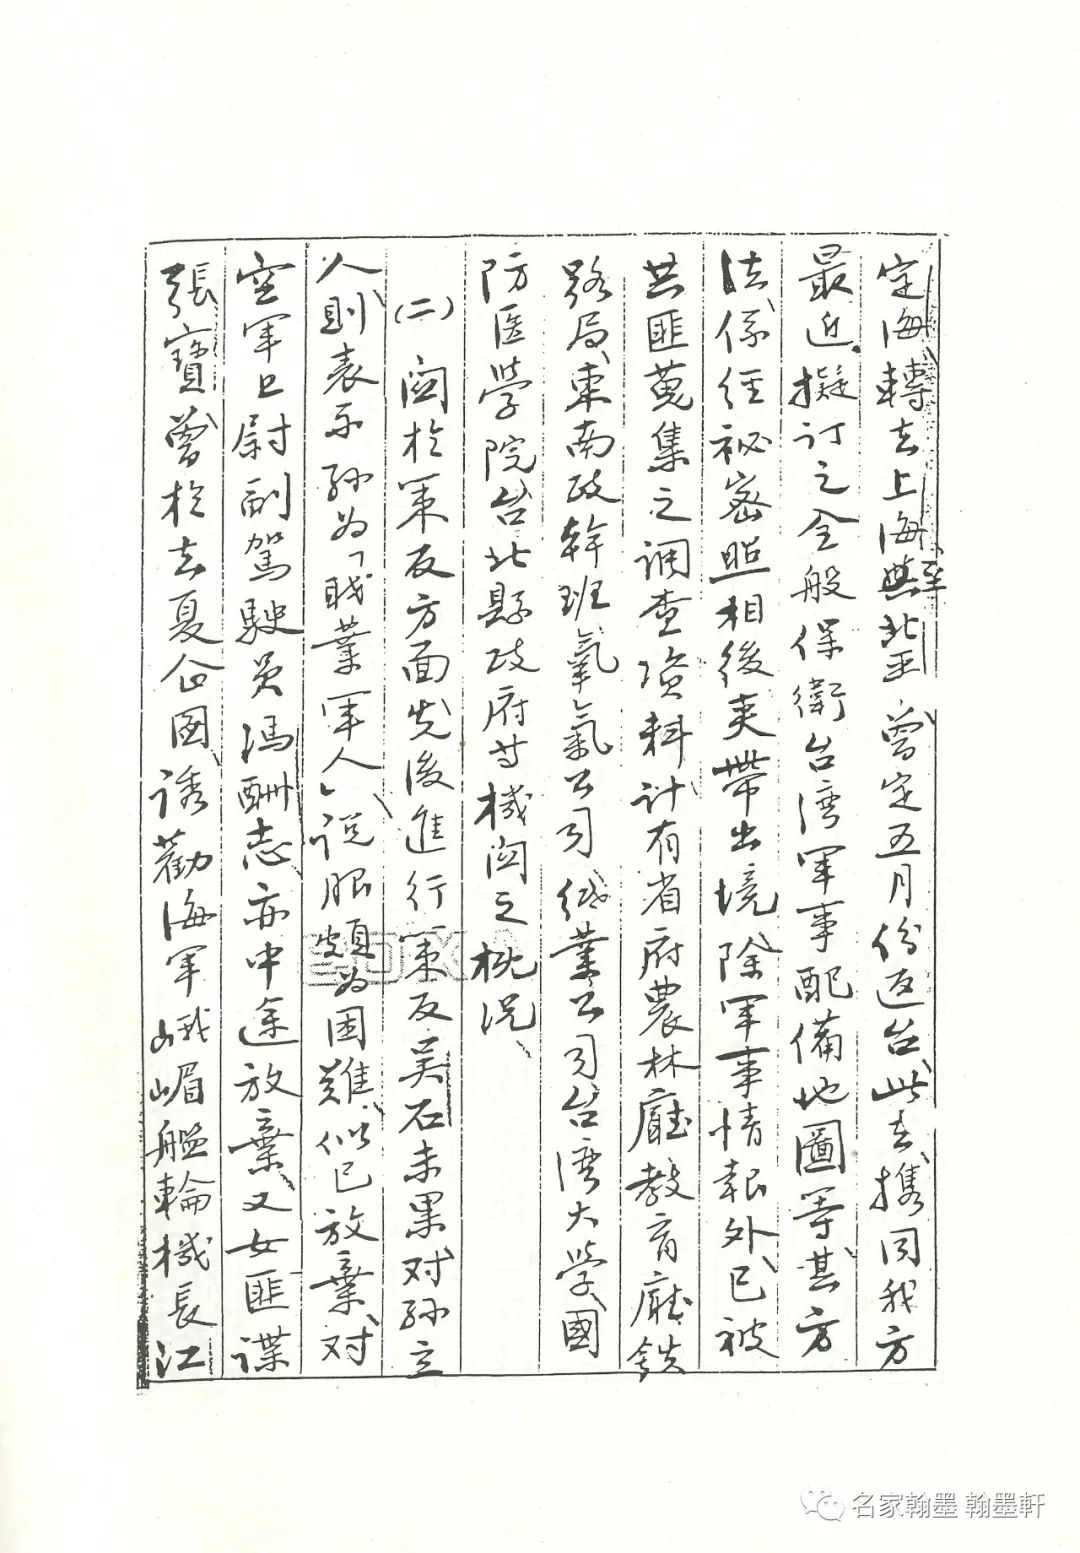 定海轉去上海無至北平、曾定五月份返台、此去携同我方
最近擬訂之全般保衛台湾軍事配備地圖等、其方
法係經祕密照相後夾帶出境、除軍事情報外、已被
共匪蒐集之調查資料計有省府農林廳教育廳鉄
路局、東南政幹班氧氣公司紙業公司台湾大学、國
防医学院台北縣政府等機関之概況、
(二)関於策反方面先後進行策反吴石未果、对孙立
人、則表示孙为「職業軍人」説服頗为困难、似已放棄、对
空軍上尉副駕駛员冯酬志亦中途放棄、又女匪諜
張寶、曾於去夏企圖、诱勸海軍峨嵋艦輪機長江
名家翰墨 翰墨軒